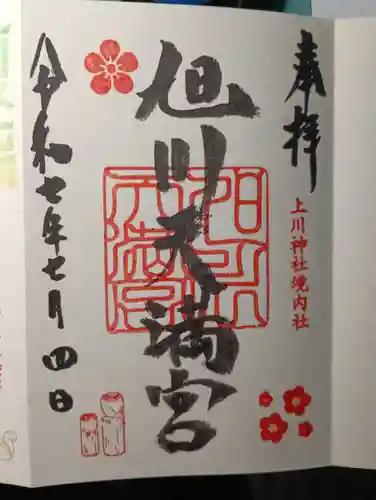 奉拝
上川神社境内社
旭川天満宮
令和七年七月四日